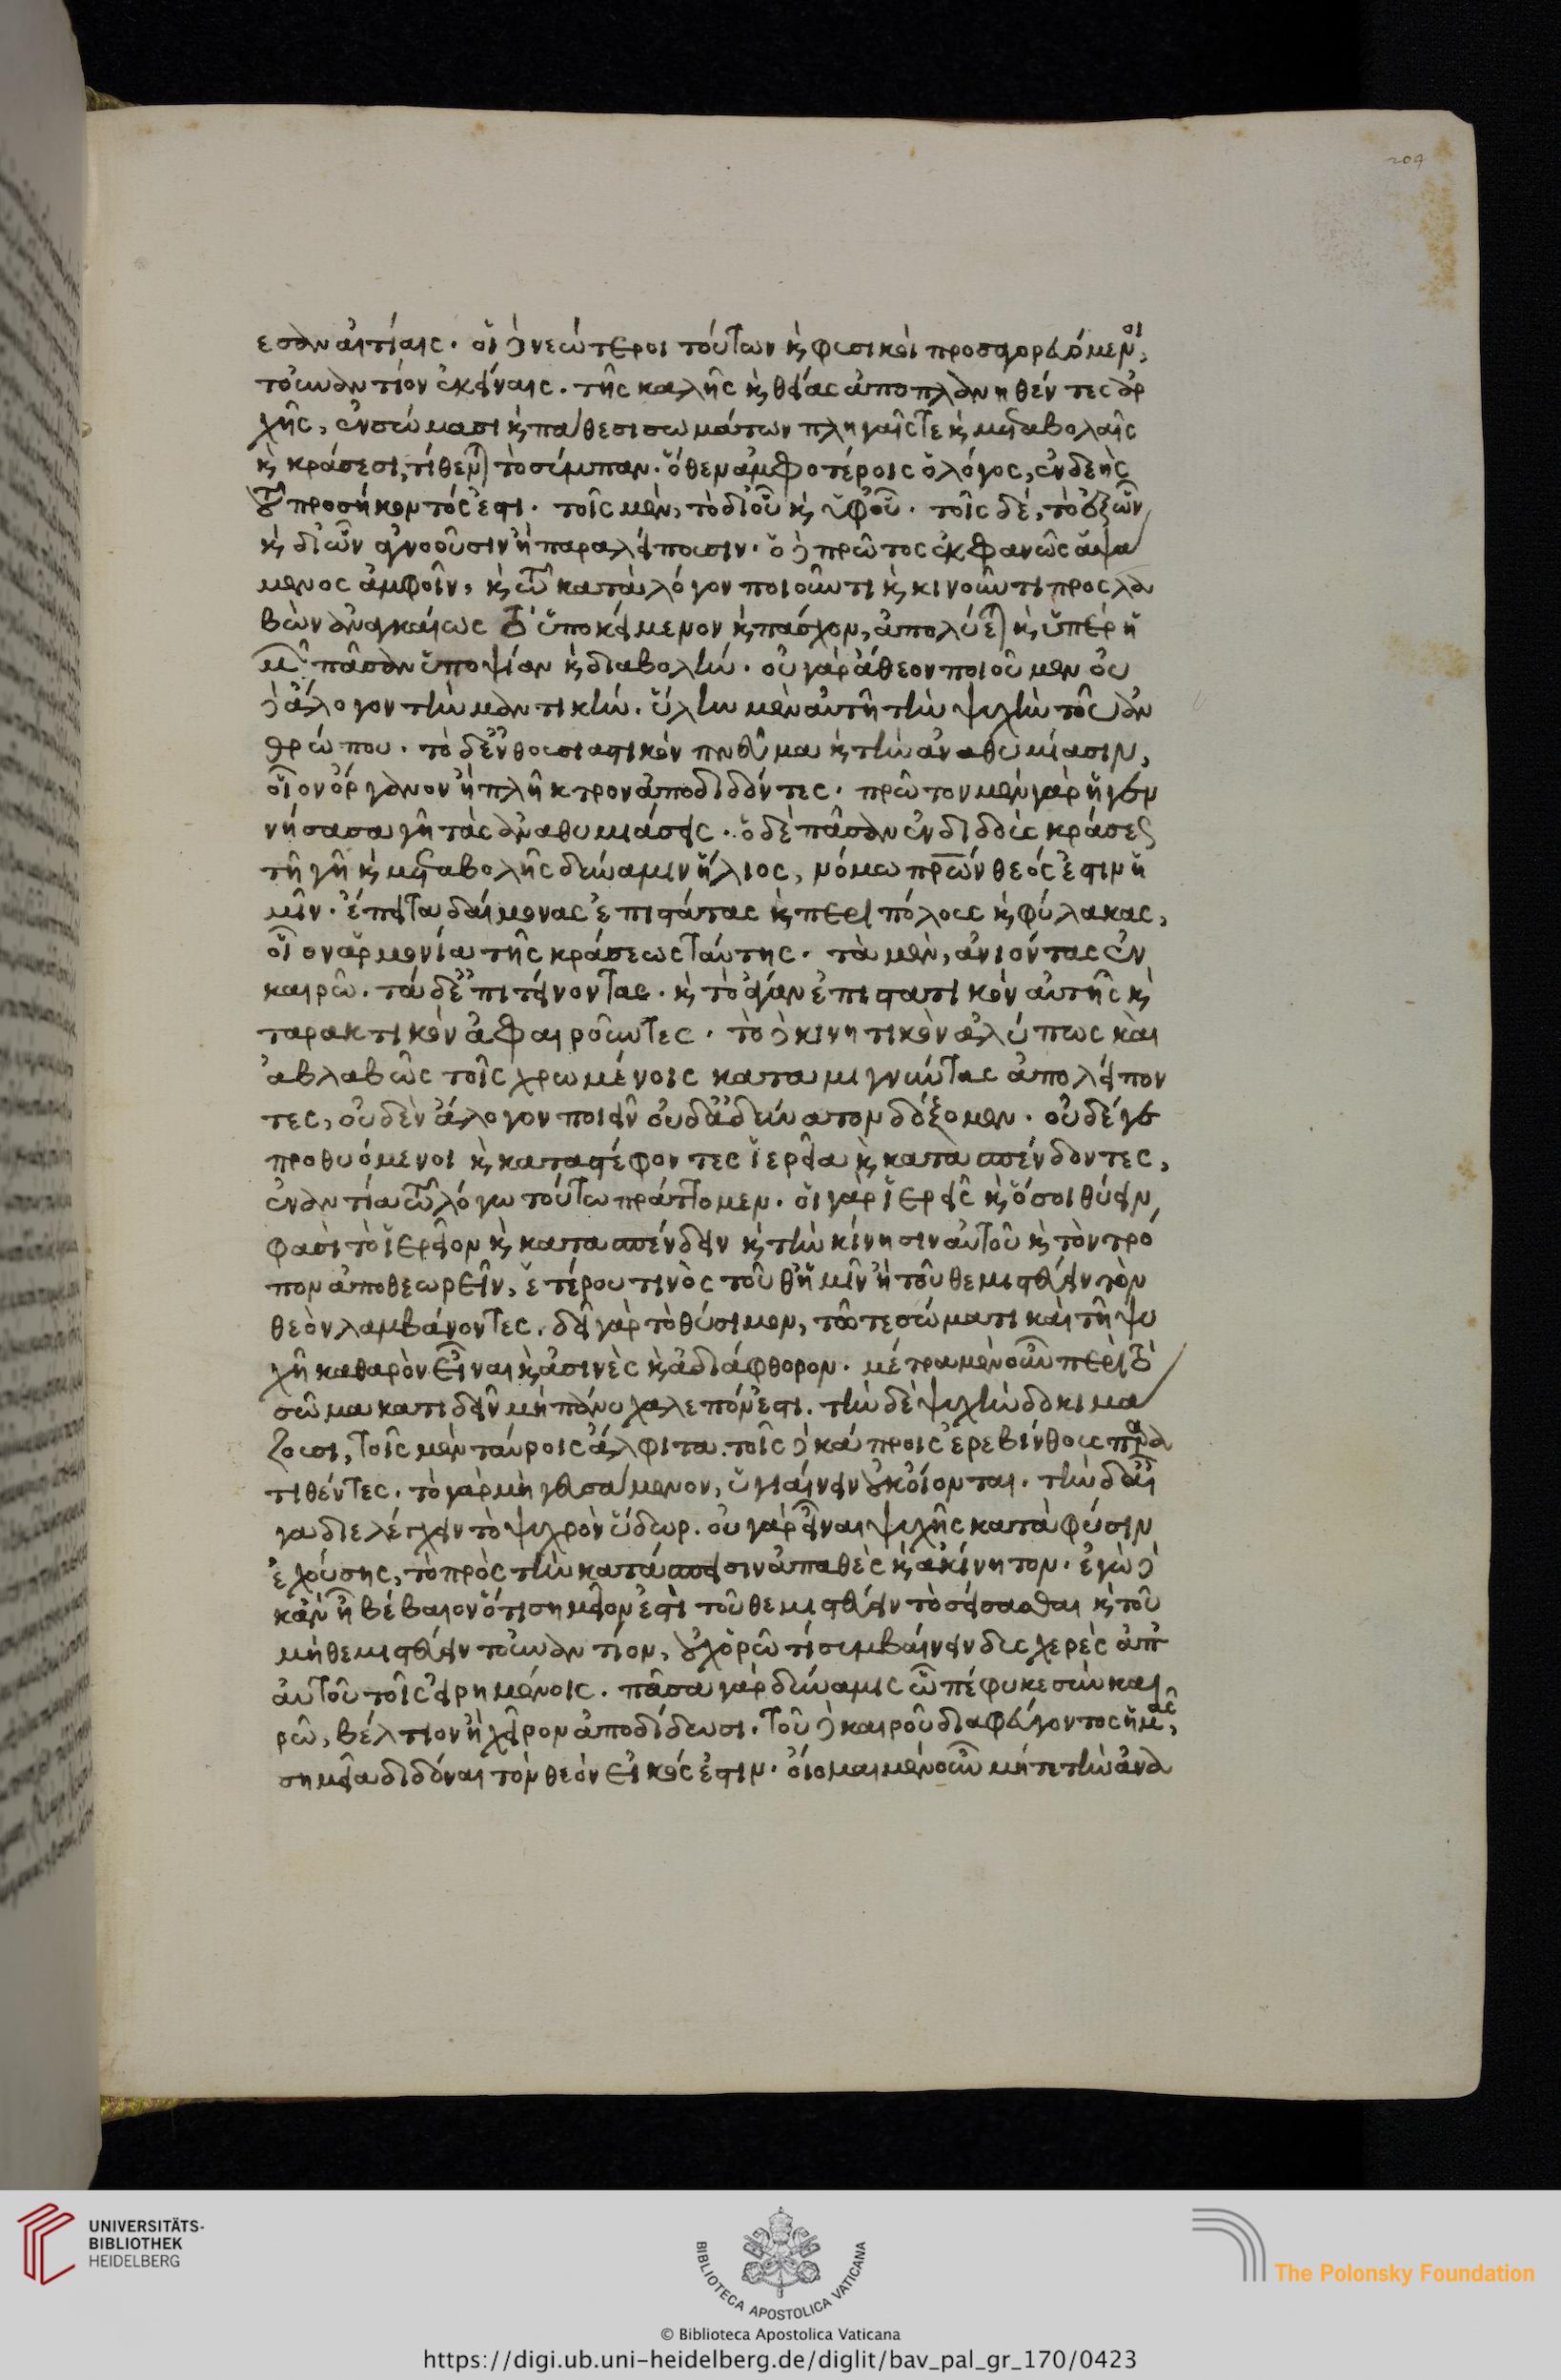 209
εσαν αἰτίαις. οἱ δὲ νεώτεροι τούτων καὶ φυσικοὶ προσαγορευόμενοι,
τοὐναντίον ἐκείναις. τῆς καλῆς καὶ θείας ἀποπλανηθέντες ἀρ
χῆς, ἐν σώμασι καὶ πάθεσι σωμάτων πληγαῖς τε καὶ μεταβολαῖς
καὶ κράσεσι, τίθενται τὸ σύμπαν. ὅθεν ἀμφοτέροις ὁ λόγος, ἐνδεὴς
τοῦ προσήκοντός ἐστι. τοῖς μὲν, τὸ δι' οὗ καὶ ὑφ' οὗ. τοῖς δέ, τὸ ἐξ ὧν
καὶ δι' ὧν ἀγνοοῦσιν ἢ παραλείπουσιν. ὁ δὲ πρῶτος ἐκφανῶς ἁψά
μενος ἀμφοῖν, καὶ τῶ κατὰ λόγον ποιοῦντι καὶ κινοῦντι προσλα
βὼν ἀναγκαίως τὸ ὑποκείμενον καὶ πάσχον, ἀπολύεται καὶ ὑπὲρ ἡ
μῶν πᾶσαν ὑποψίαν καὶ διαβολήν. οὐ γὰρ ἄθεον ποιοῦμεν οὐ
δὲ ἄλογον τὴν μαντικήν. ὕλην μὲν αὐτῆ τὴν ψυχὴν τοῦ ἀν
θρώπου. τὸ δ' ἐνθουσιαστικόν πνεῦμα καὶ τὴν ἀναθυμίασιν,
οἷον ὄργανον ἢ πλῆκτρον ἀποδιδόντες. πρῶτον μὲν γὰρ ἡ γεν
νήσασα γῆ τὰς ἀναθυμιάσεις. ὁ δὲ πᾶσαν ἐνδιδοὺς κράσεως
τῆ γῆ καὶ μεταβολῆς δύναμιν ἥλιος, νόμω πρων θεός ἐστιν ἡ
μῖν. ἔπειτα δαίμονας ἐπιστάτας καὶ περιπόλους καὶ φύλακας,
οἷον ἁρμονία τῆς κράσεως ταύτης. τὰ μὲν, ἀνιόντας ἐν
καιρῶ. τὰ δὲ ἐπιτείνοντας. καὶ τὸ ἄγαν ἐπιστατικόν αὐτῆς καὶ
ταρακτικὸν ἀφαιροῦντες. τὸ δὲ κινητικὸν ἀλύπως καὶ
ἀβλαβῶς τοῖς χρωμένοις καταμιγνύντας ἀπολείπον
τες, οὐδὲν ἄλογον ποιεῖν οὐδ' ἀδύνατον δόξομεν. οὐδέ γε
προθυόμενοι καὶ καταστέφοντες ἱερεῖα καὶ κατασπένδοντες,
ἐναντία τῶ λόγω τούτω πράττομεν. οἱ γὰρ ἱερεῖς καὶ ὅσοι θύειν
φασὶ τὸ ἱερεῖον καὶ κατασπένδειν καὶ τὴν κίνησιν αὐτοῦ καὶ τὸν τρό
πον ἀποθεωρεῖν, ἑτέρου τινὸς τοῦ θ' ἡμῖν ἢ τοῦ θεμιστεύειν τὸν
θεὸν λαμβάνοντες. δεῖ γὰρ τὸ θύσιμον, τῶ τε σώματι καὶ τῆ ψυ
χῆ καθαρὸν εἶναι καὶ ἀσινὲς καὶ ἀδιάφθορον. μέτρα μὲν οὖν περὶ τὸ
σῶμα κατιδεῖν μὴ πάνυ χαλεπόν ἐστι. τὴν δὲ ψυχὴν δοκιμά
ζουσι, τοῖς μὲν ταύροις ἄλφιτα. τοῖς δὲ κάπροις ἐρεβίνθους παρα
τιθέντες. τὸ γὰρ μὴ γευσάμενον, ὑγιαίνειν οὐκ οἴονται. τὴν δ' αἶ
γα διελέγχειν τὸ ψυχρὸν ὕδωρ. οὐ γὰρ εἶναι ψυχῆς κατὰ φύσιν
ἐχούσης, τὸ πρὸς τὴν κατάσπεισιν ἀπαθὲς καὶ ἀκίνητον. ἐγὼ δὲ
κἂν ᾖ βέβαιον ὅτι σημεῖον ἐστὶ τοῦ θεμιστεύειν τὸ σείσασθαι καὶ τοῦ
μὴ θεμιστεύειν τοὐναντίον, οὐχ ὁρῶ τί συμβαίνειν δυσχερὲς ἀπ'
αὐτοῦ τοῖς εἰρημένοις. πᾶσα γὰρ δύναμις ὃ πέφυκε σὺν και
ρῶ, βέλτιον ἢ χεῖρον ἀποδίδωσι. τοῦ δὲ καιροῦ διαφεύγοντος ἡμᾶς,
σημεῖα διδόναι τὸν θεὸν εἰκός ἐστιν. οἴομαι μὲν οὖν μήτε τὴν ἀνα
UNIVERSITÄTS-
BIBLIOTHEK
HEIDELBERG
BIBLIOTECA APOSTOLICA VATICANA
The Polonsky Foundation
© Biblioteca Apostolica Vaticana
https://digi.ub.uni-heidelberg.de/diglit/bav_pal_gr_170/0423